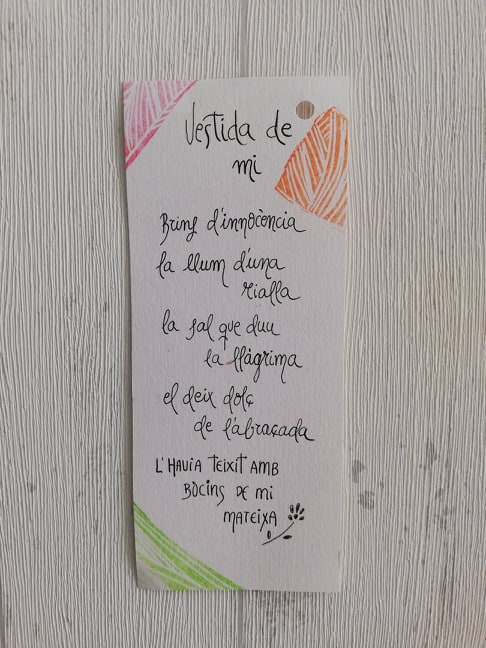 Vestida de
mi
Brins d'innocència
la llum d'una
rialla
la sal que duu
la llàgrima
el deix dolç
de l'abraçada
L'HAVIA TEIXIT AMB
BOCINS DE MI
MATEIXA